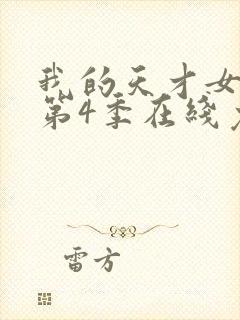 我的天才女
第4季在线
雷方